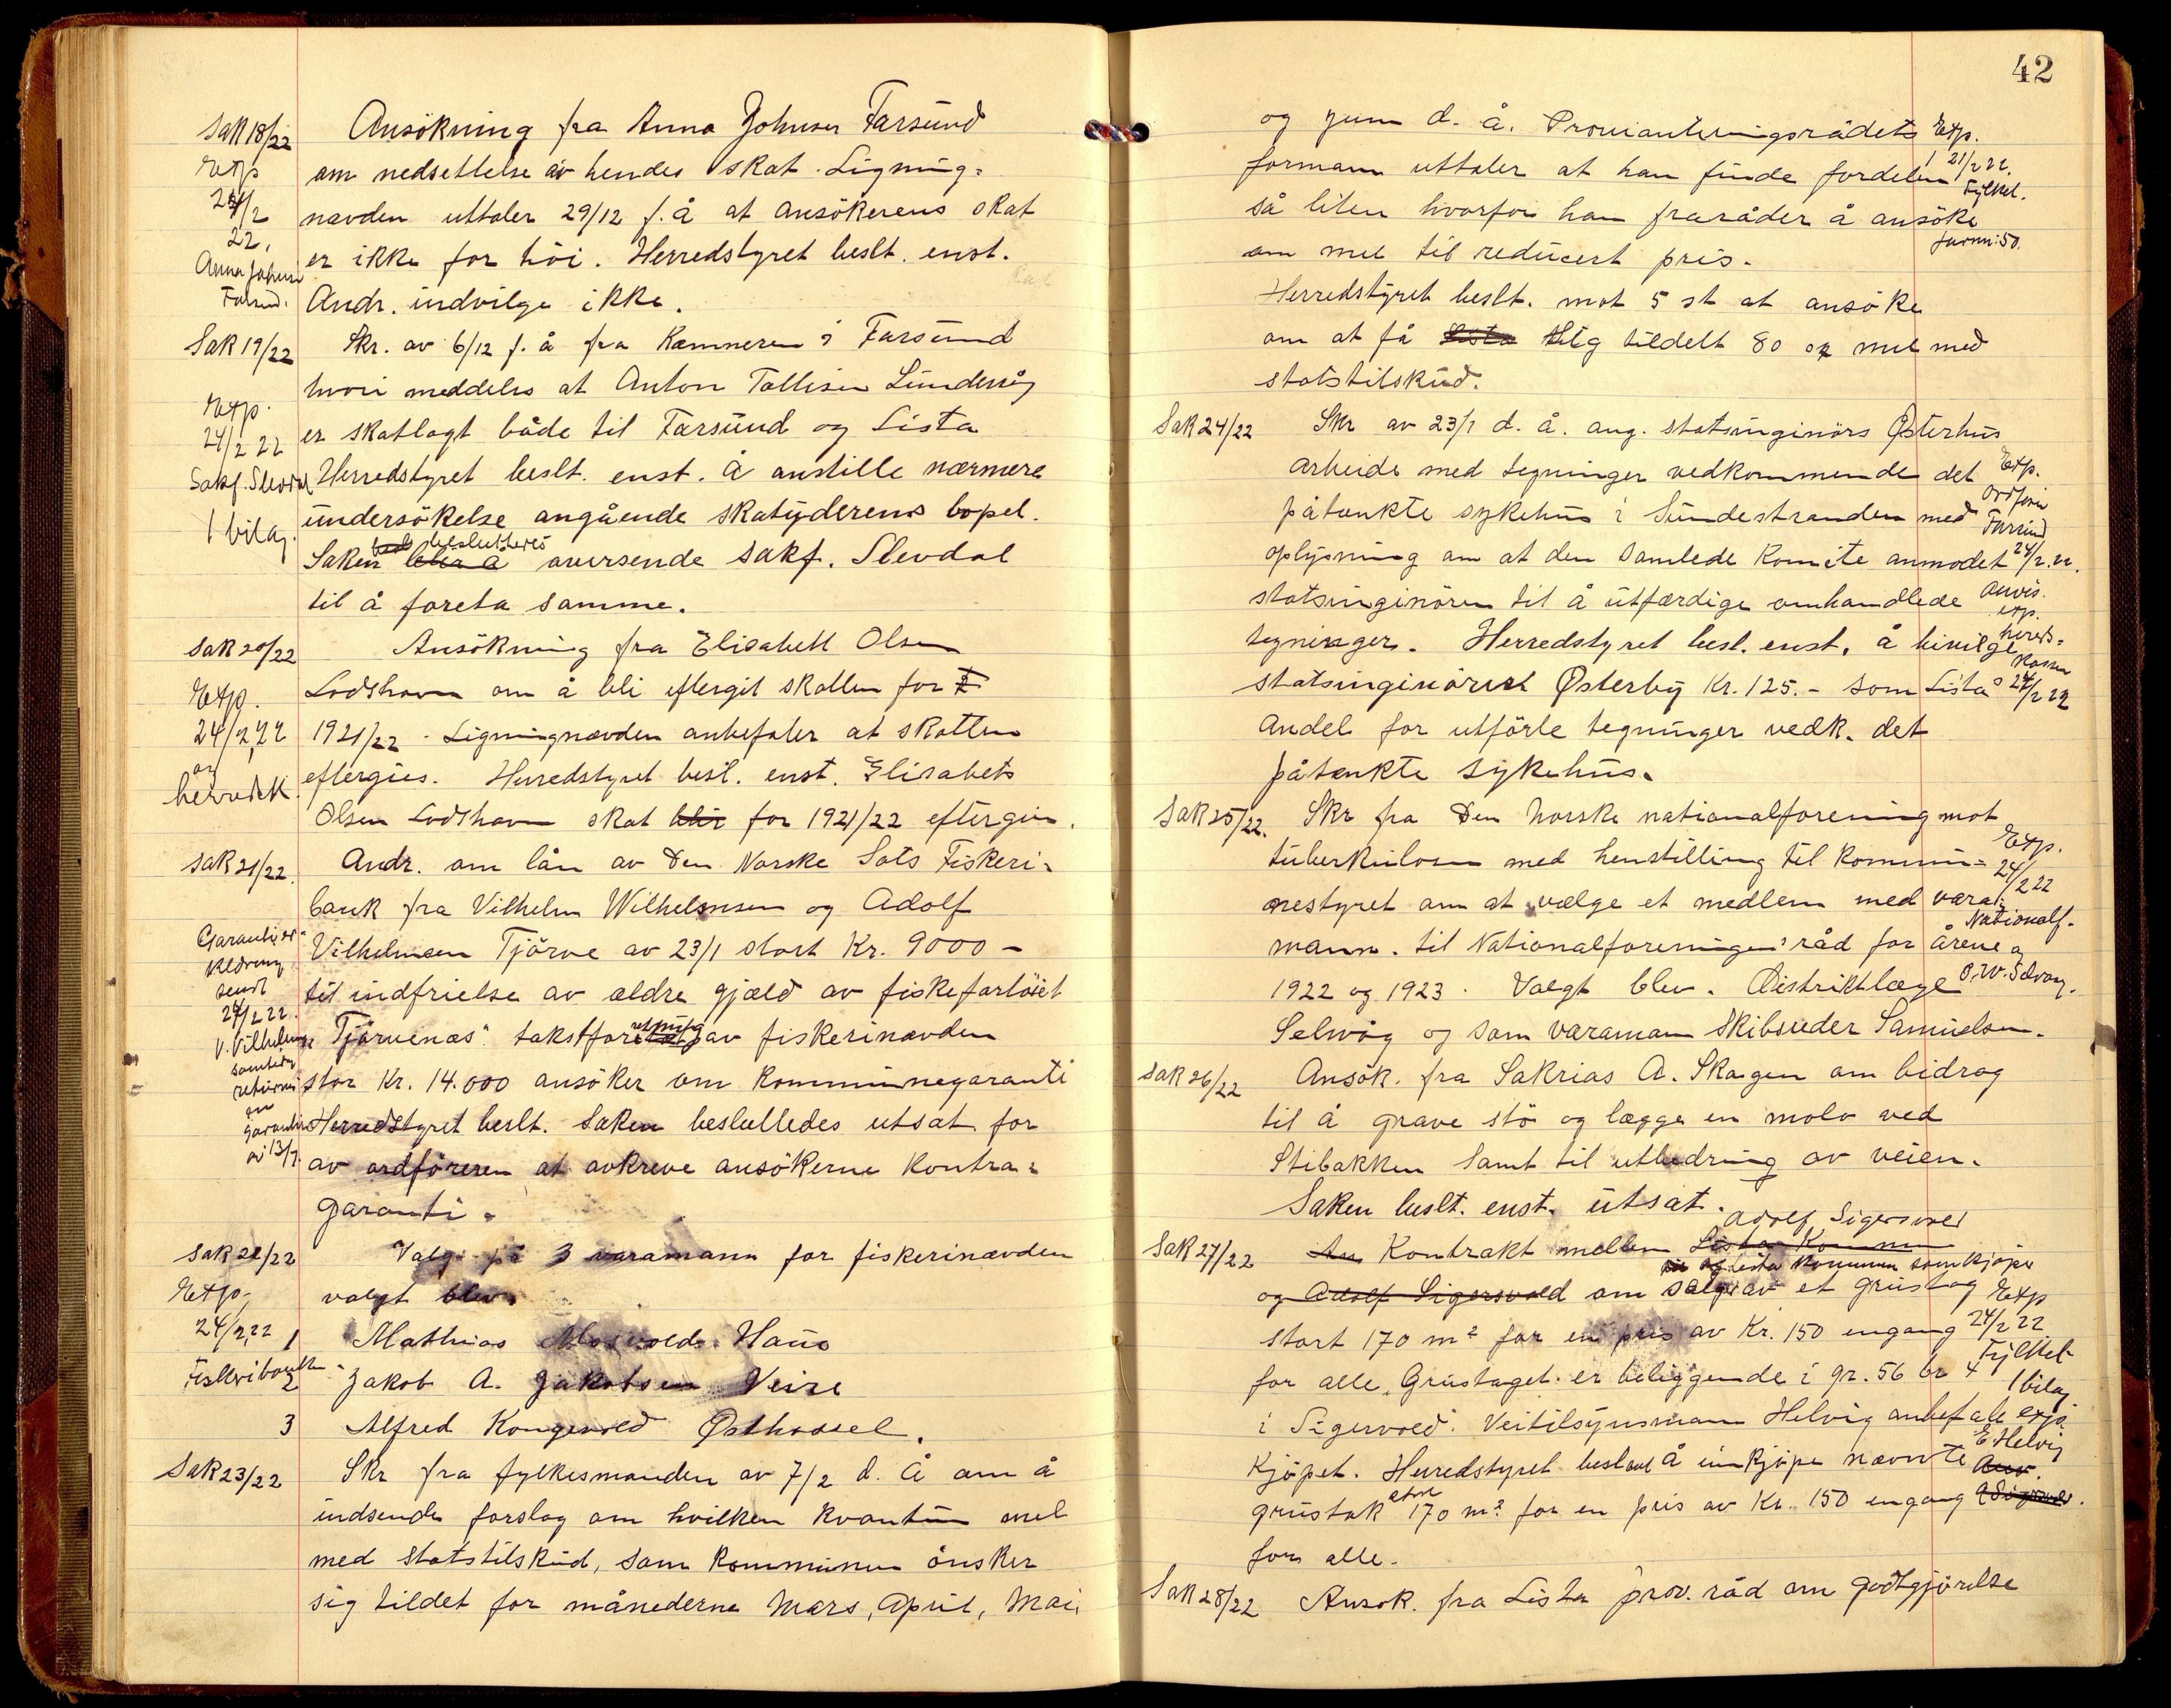 42
Sak 18/22 Ansökning fra Anna Johnsen Farsund
Exp om nedsettelse av hendes skat. Ligning=
24/2 nævden uttaler 29/12 f. å at ansökerens skat
22, er ikke for höi. Herredstyret beslt. enst.
Anna Johnsen
Farsund. Andr. indvilge ikke.
Sak 19/22 Skr. av 6/12 f. å fra Kæmneren i Farsund
hvori meddeles at Anton Tallisen Lundevåg
Exp. er skatlagt både til Farsund og Lista
24/2 22
Sakf. Slevdal Herredstyret beslt. enst. å anstille nærmere
1 bilag. undersökelse angående skatyderens bopel.
beslutteres
Saken blir å oversende sakf. Slevdal
til å foreta samme.
Sak 20/22 Ansökning fra Elisabeth Olsen
Exp. Lodshavn om å bli eftergit skatten for
24/2,22 1921/22 - Ligningnævden anbefaler at skatten
og
herredsk. eftergies. Herredstyret besl. enst. Elisabets
Olsen Lodshavn skat blir for 1921/22 eftergin.
Sak 21/22. Andr. om lån av Den Norske Sats Fiskeri=
bank fra Vilhelm Wilhelmsen og Adolf
Garantier=
klæring Vilhelmsen Tjörve av 23/1 stort Kr. 9000 -
sendt til indfrielse av ældre gjæld av fiskefartöiet
24/2 22.
V. Vilhelmsen "Tjörvenæs" takstforretning av fiskerinævden
samtidig
returnert stor Kr. 14.000 ansöker om kommunegaranti
garanti Herredstyret beslt. Saken beslulledes utsat for
av 13/1. av ordföreren at avkreve ansökerne kontra=
garanti.
Sak 22/22 Valg på 3 varamann for fiskerinævden
Exp. valgt blev.
24/2,22 1 Mathias Mosvold Haus
Fiskeribanken 2 Jakob A. Jakobsen Veise
3 Alfred Kongevold Østhassel.
Sak 23/22 Skr fra fylkesmanden av 7/2 d. å om å
indsende forslag om hvilken kvantum mel
med statstilskud, som kommunen önsker
sig tildet for månederne Mars, April, Mai,
og juni d. å. Provianteringsrådets Exp.
formann uttaler at han finde fordelen 21/2 22.
Fylkel.
så liten hvorfor han fraråder å ansöke
om mel til reducert pris.
Herredstyret beslt. mot 5 st at ansöke
om at få Lista sig tildelt 80 og mel med
statstilskud.
Sak 24/22 Skr av 23/1 d. å. ang. statsinginörs Østerhus
arbeide med tegninger vedkommende det Exp.
påtænkte sykehus i Sundestranden med Ordförer Farsund
oplysning om at den samlede komite anmodet 24/2.22.
statsinginören til å utfærdige omhandlede Anvis.
exp.
tegninger. Herredstyret besl. enst. å bivilge herreds=
kassen
statsinginörest Østerby Kr. 125.- som Lista's 24/2 22
Andel for utförte tegninger vedk. det
påtænkte sykehus.
Sak 25/22. Skr fra Den Norske nationalforening mot
tuberkulosen med henstilling til kommu= Exp.
24/2 22
nestyret om at vælge et medlem med vara=
Nationalf.
mann. til Nationalforeningen's råd for årene og
1922 og 1923. Valgt blev. Distriktlæge O.W. Selvog.
Selvåg og som varamann Skibsreder Samuelsen.
Sak 26/22 Ansök. fra Sakrias A. Skagen om bidrag
til å grave stö og lægge en molo ved
Stibakken samt til utbedring av veien.
Saken beslt. enst. utsat.
Adolf Sigersvold
Sak 27/22 An Kontrakt mellem Lista Kommun
og Lista kommun som kjöper
og Adolf Sigersvold om salg av et grustag Exp
stort 170 m² for en pris av Kr. 150 engang 24/2 22
for alle. Grustaget er beliggende i gr. 56 br 4 Fylkel.
1 bilag
i Sigersvold. Veitilsynsmann Helvig anbefale
kjöpet. Herredstyret beslt å innkjöpe nævnte E Helvig
Anv.
grustak 170 m² for en pris av Kr. 150 engang
for alle.
Sak 28/22 Ansök. fra Lista prov. råd om godtgjörelse